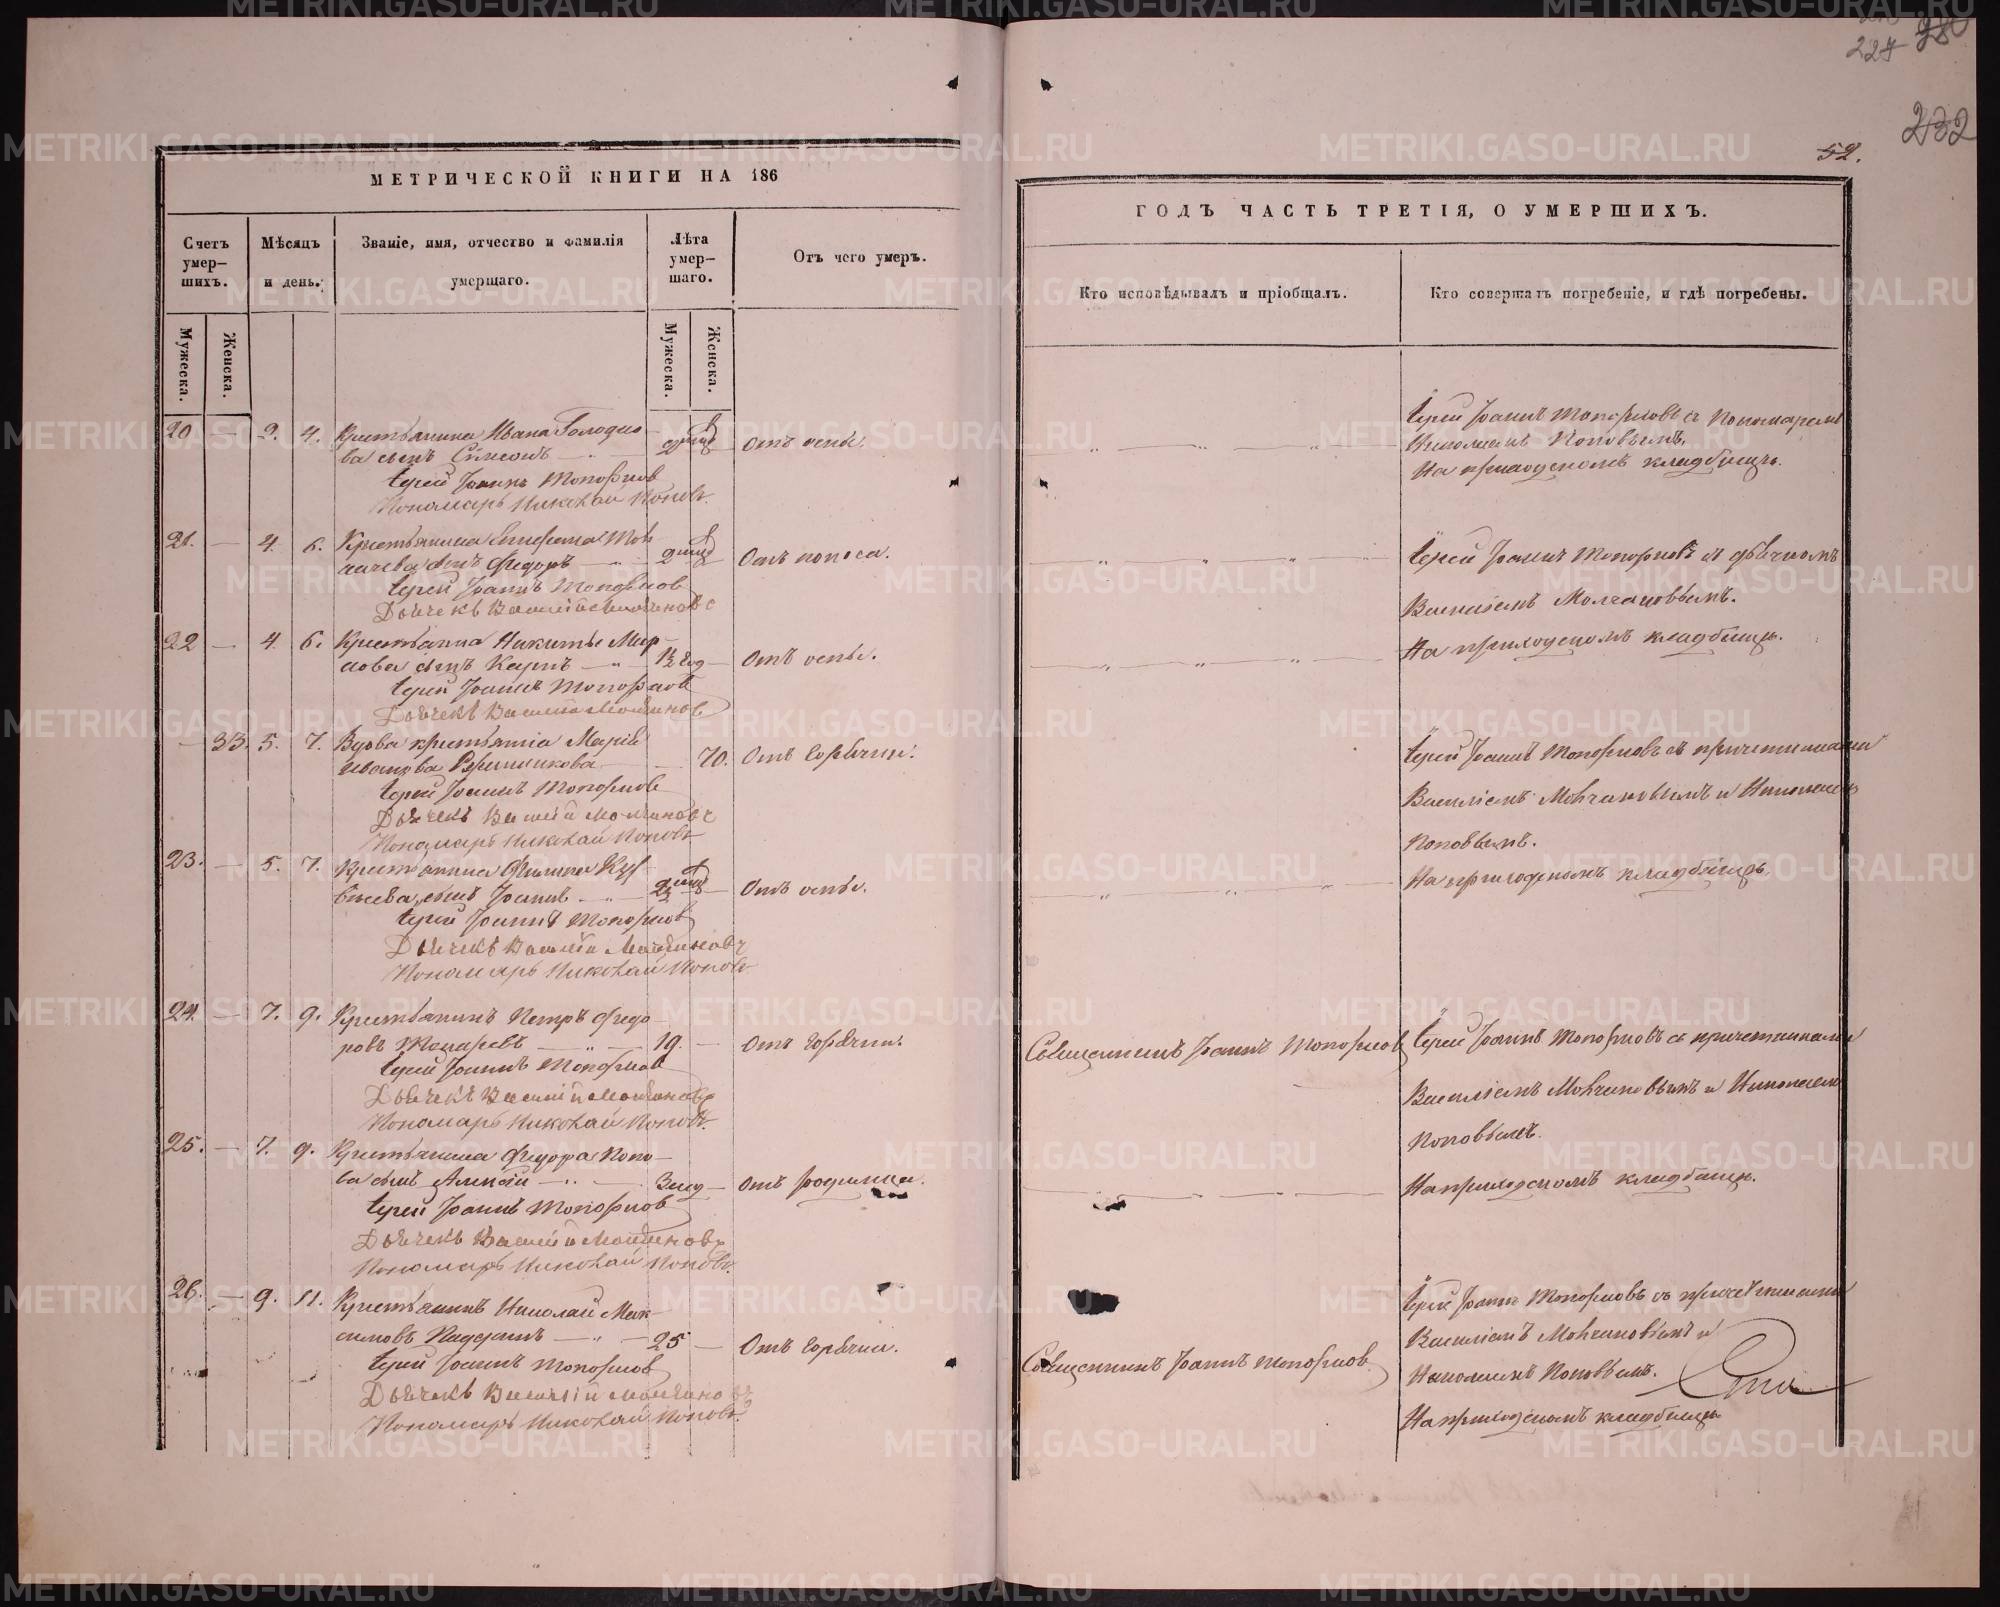 227
232
52.
МЕТРИЧЕСКОЙ КНИГИ НА 186
ГОДЪ ЧАСТЬ ТРЕТІЯ, О УМЕРШИХЪ.
Счетъ умер-
шихъ.
Мѣсяцъ
и день.
Званіе, имя, отчество и фамилія
умершаго.
Лѣта
умер-
шаго.
Отъ чего умеръ.
Кто исповѣдывалъ и пріобщалъ.
Кто совершалъ погребеніе, и гдѣ погребены.
Мужеска.
Женска.
Мужеска.
Женска.
20 — 2. 4. Крестьянина Ивана
ва сынъ Симеонъ — Отъ оспы.
Іерей Іоаннъ Топорковъ
Пономарь Николай Поповъ.
Іерей Іоаннъ Топорковъ съ Пономаремъ
Николаемъ Поповымъ.
На приходскомъ кладбищѣ.
21. — 4. 6. Крестьянина
сынъ Ѳедоръ — Отъ поноса.
Іерей Іоаннъ Топорковъ
Дьячекъ Василій Молчановъ
Іерей Іоаннъ Топорковъ съ дьячкомъ
Василіемъ Молчановымъ.
На приходскомъ кладбищѣ.
22 — 4. 6. Крестьянина Никиты
сынъ Карпъ — 1½ год — Отъ оспы.
Іерей Іоаннъ Топорковъ
Дьячекъ Василій Молчановъ
— 33. 5. 7. Вдова крестьянка Марія
Иванова — 70. Отъ горячки.
Іерей Іоаннъ Топорковъ
Дьячекъ Василій Молчановъ
Пономарь Николай Поповъ
Іерей Іоаннъ Топорковъ съ причетниками
Василіемъ Молчановымъ и Николаемъ
Поповымъ.
На приходскомъ кладбищѣ.
23. — 5. 7. Крестьянина Филиппа
сынъ Іоаннъ — Отъ оспы.
Іерей Іоаннъ Топорковъ
Дьячекъ Василій Молчановъ
Пономарь Николай Поповъ
24. — 7. 9. Крестьянинъ Петръ Ѳедо-
ровъ — 19. — Отъ горячки.
Іерей Іоаннъ Топорковъ
Дьячекъ Василій Молчановъ
Пономарь Николай Поповъ.
Священникъ Іоаннъ Топорковъ
Іерей Іоаннъ Топорковъ съ причетниками
Василіемъ Молчановымъ и Николаемъ
Поповымъ.
На приходскомъ кладбищѣ.
25. — 7. 9. Крестьянина Ѳедора Попо-
ва сынъ Алексій — Отъ родимца.
Іерей Іоаннъ Топорковъ
Дьячекъ Василій Молчановъ
Пономарь Николай Поповъ.
26. — 9. 11. Крестьянинъ Николай Мак-
симовъ — 25 — Отъ горячки.
Іерей Іоаннъ Топорковъ
Дьячекъ Василій Молчановъ
Пономарь Николай Поповъ.
Священникъ Іоаннъ Топорковъ
Іерей Іоаннъ Топорковъ съ причетниками
Василіемъ Молчановымъ и
Николаемъ Поповымъ.
На приходскомъ кладбищѣ
METRIKI.GASO-URAL.RU